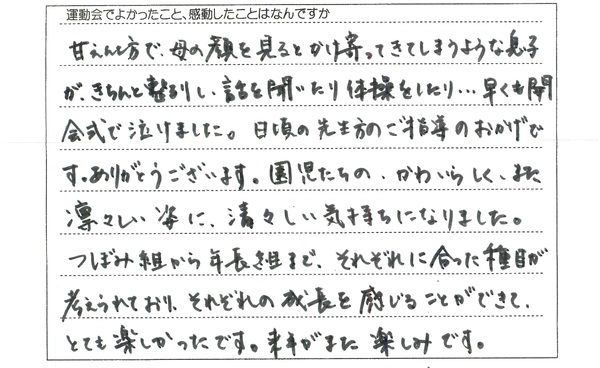 運動会でよかったこと、感動したことはなんですか
甘えん坊で、母の顔を見るとかけ寄ってきてしまうような息子
が、きちんと整列し、話を聞いたり体操をしたり…早くも開
会式で泣けました。日頃の先生方のご指導のおかげで
す。ありがとうございます。園児たちの、かわいらしく、また
凛々しい姿に、清々しい気持ちになりました。
つぼみ組から年長組まで、それぞれに合った種目が
考えられており、それぞれの成長を感じることができて、
とても楽しかったです。来年がまた楽しみです。